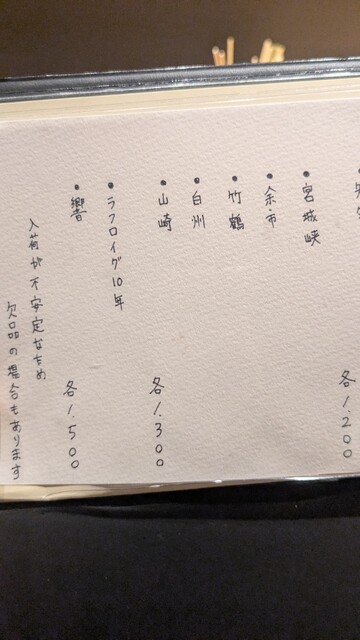 各1.200
・宮城峡
・余市
・竹鶴
・白州
・山崎 各1.300
・ラフロイグ10年
・響 各1.500
入荷が不安定なため
欠品の場合もあります